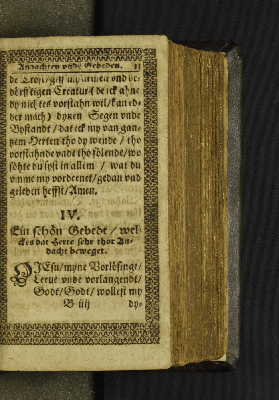 Andachten vnde Gebeden. 11
de Trost/giff my armen vnd be-
dörfftigen Creatur ( de ick ahne
dy nichtes vorstahn wil/kan ed-
der mach ) dynen Segen vnde
Bystandt / dat ick my van gan-
tzem Herten tho dy wende / tho
vorstahnde vnde tho sölende/wo
söhte du syst in allem / wat du
vmme my vordeenet/gedan vnd
geleden heffst/Amen.
IV.
Ein schön Gebedt / wel-
ckes dat Herte sehr thor An-
dacht beweget.
O JEsu/myne Vorlösinge/
Leeue vnde vorlangendt/
Godt/Godt/ wollest my
B iij dy-